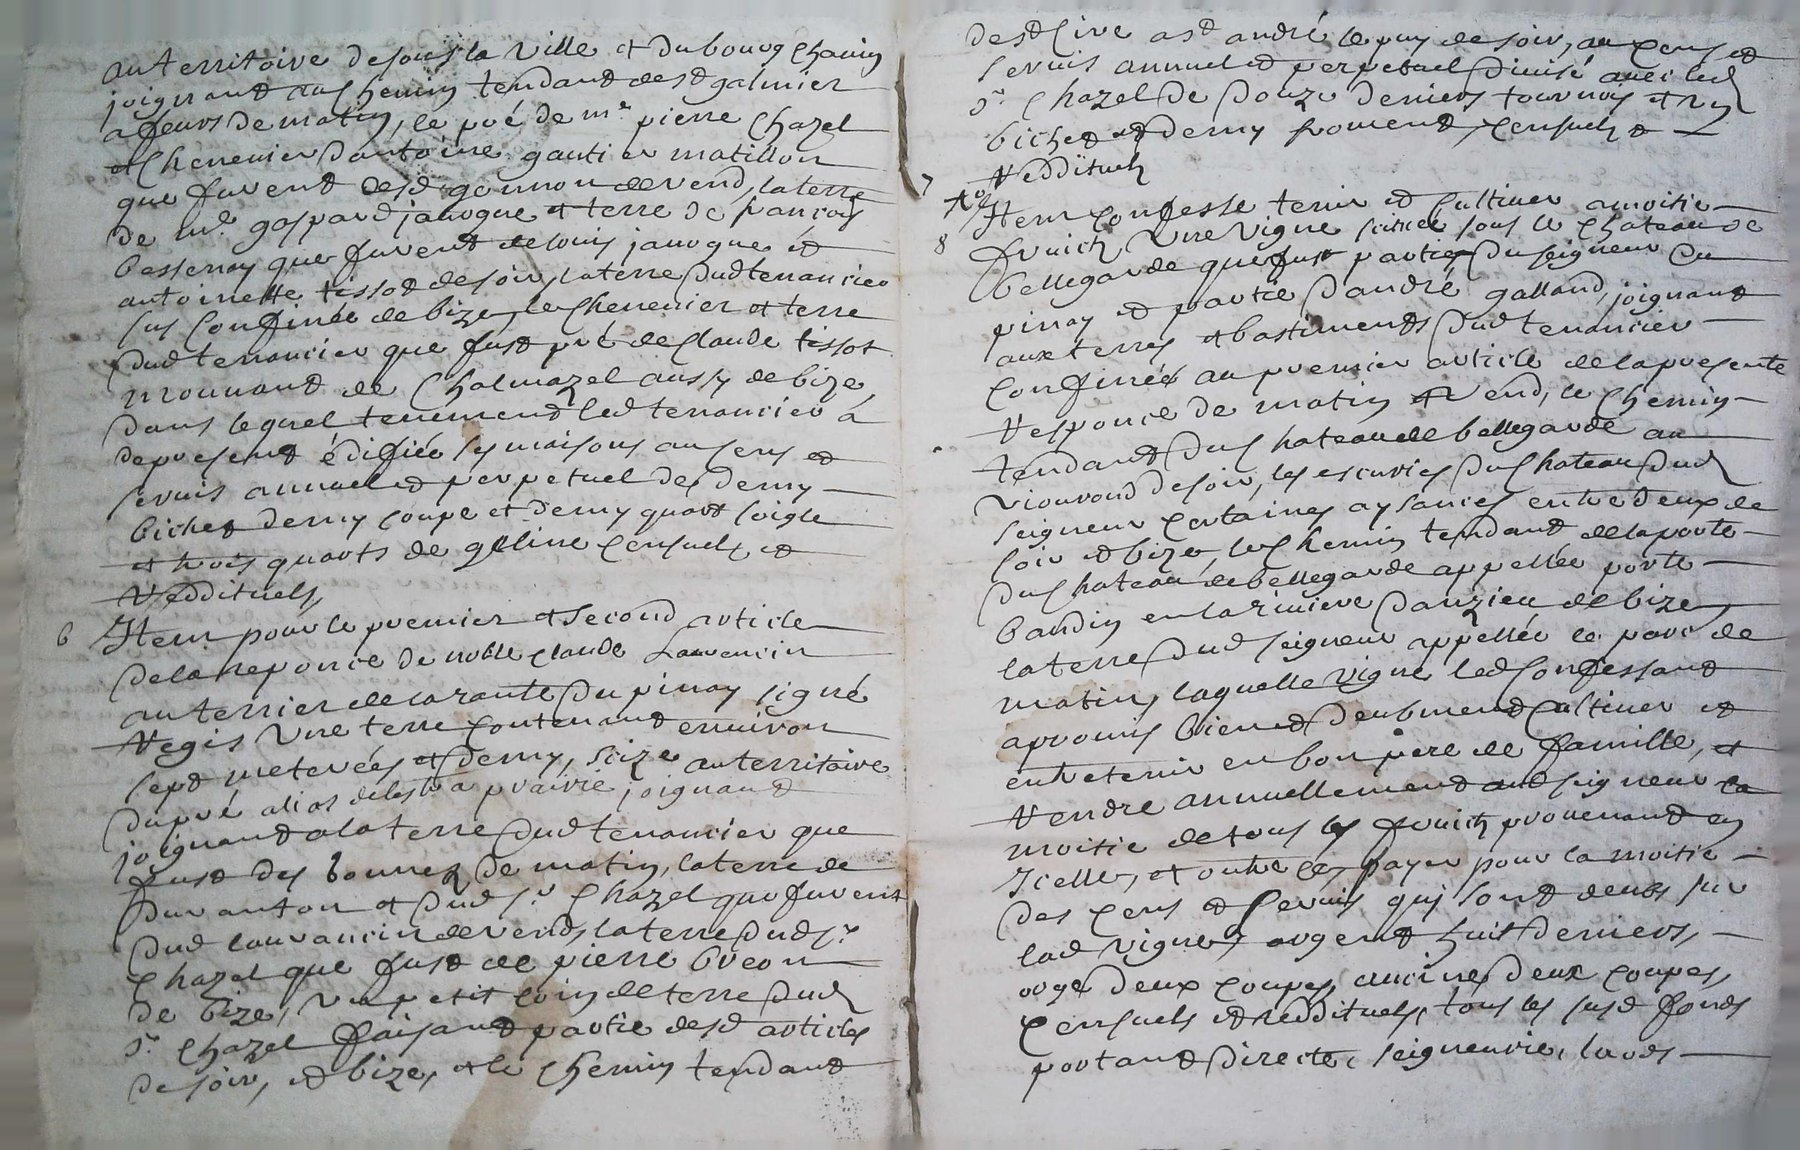 au territoire desous la ville et du bourg chemin
joignant au chemin tendant de st galmier
a feurs de matin, le pré de mr pierre Chazel
et chenevier d'antoine gautier matillon
que furent desd gonnon de vend, la terre
de mr. gaspard janogue et terre de francois
bessenay que furent de louis janogue et
antoinette tissot de soir, la terre dud tenancier
sus confinée de bize, le chenevier et terre
dud tenancier que fust pré de claude tissot
mouvant de Chalmazel aussy de bize,
dans lequel tenement led tenancier à
depresent édifiée ses maisons au sens et
servis annuel et perpetuel de demy
bichet demy coupe et demy quart soigle
et trois quarts de geline censuels et
reddituels,
6 Item pour le premier et second article
de la reponce de noble claude Laurencin
au terrier de la rante du pinay signé
Regis une terre contenant environ
sept meterées et demy, size au territoire
du pré alias de la prairie joignant
joignant a la terre dud tenancier que
fust des bonnes de matin, la terre de
duranton et dud sr. Chazel que furent
dud lauvancin de vend, la terre dud sr
Chazel que fust de pierre breon
de bize, un petit coin de terre dud
sr Chazel faisant partie desd articles
de soir, et bize, et le chemin tendant
de st Cire a st andré le puy de soir, au cens et
servis annuel et perpetuel divisé avec led
sr Chazel de douze deniers tournois et un
bichet et demy froment, censuels et
reddituels
7
8 Item confesse tenir et cultiver a moitie
fruicts une vigne scituée sous le chateau de
bellegarde que fust partie du seigneur du
pinay et partie d'andré galland, joignant
aux terres et bastiments dud tenancier
confinée au premier article de la presente
responce de matin et vend, le chemin
tendant du chateau de bellegarde au
riourond de soir, les escuries du chateau dud
seigneur certaines aysances entre deux de
soir et bize, le chemin tendant de la porte
du chateau de bellegarde appellée porte
baudin en la riviere d'anzieu de bize,
la terre dud seigneur appellée le parc de
matin, laquelle vigne led confessant
a promis bien et deubment cultiver et
entretenir en bon père de famille, et
rendre annuellement aud seigneur la
moitie de tous les fruicts provenant en
icelle, et outre ce, payer pour la moitie
des cens et servis qui sont deubs sur
lad vigne, argent huit deniers,
orge deux coupes, avoine deux coupes,
censuels et reddituels, tous les susd fonds
portant directe, seigneurie, laods